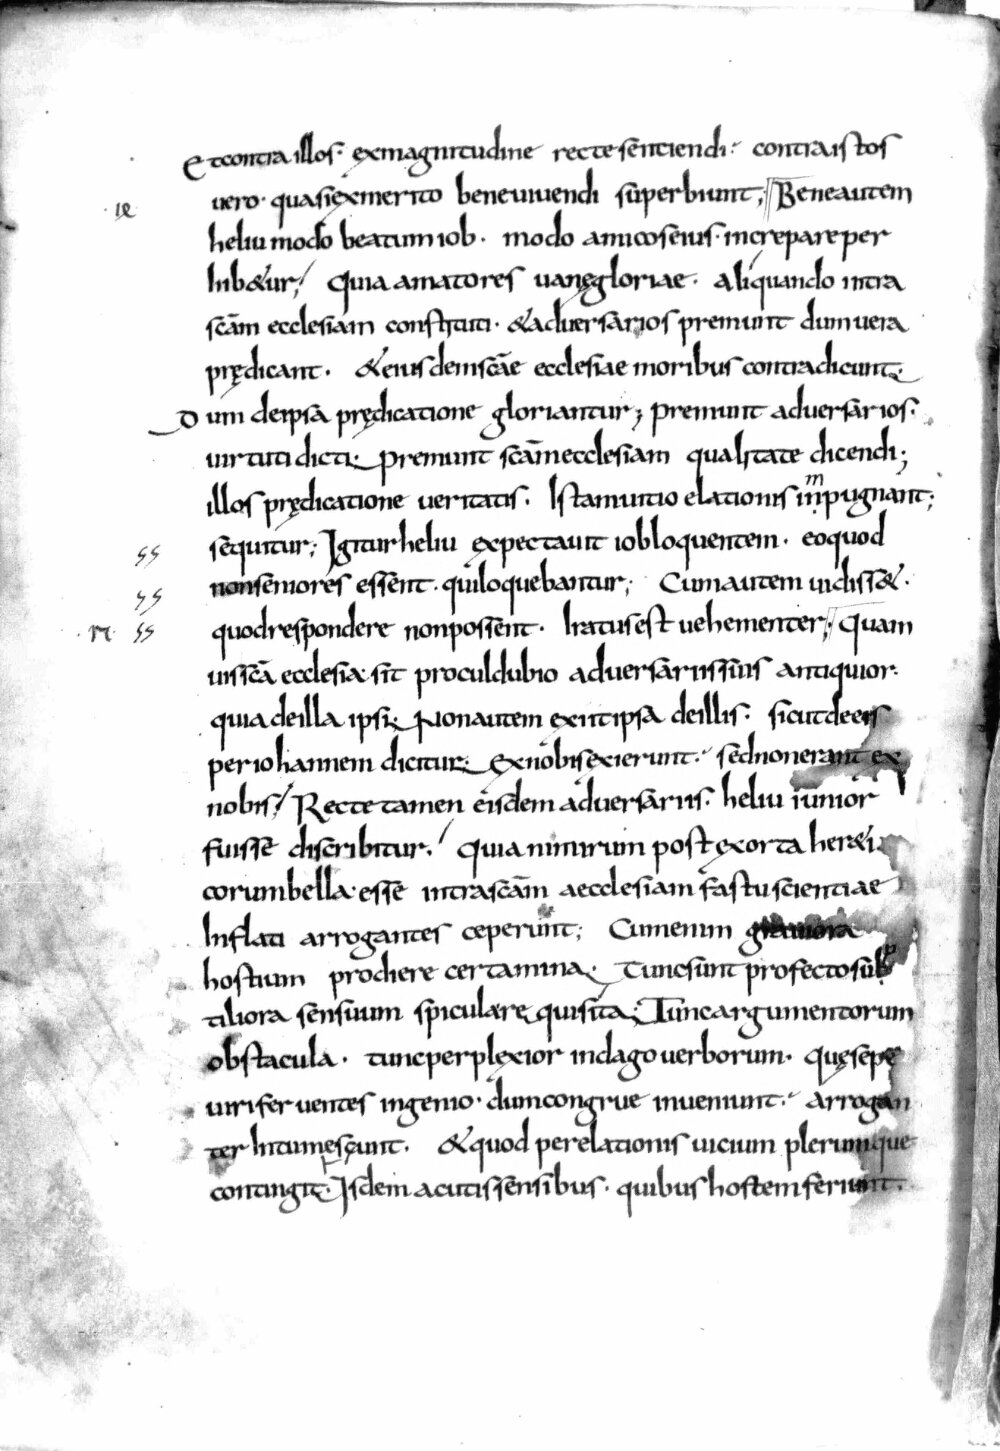 Et contra illos. ex magnitudine recte sentiendi. contra istos
uero. quasi ex merito bene uiuendi superbiunt; Bene autem
ie
heliu modo beatum iob. modo amicos eius. increpare per
hib&ur; Quia amatores uanę gloriae. aliquando intra
scãm ecclesiam constituti. & aduersarios premunt dum uera
prędicant. & eiusdem scãe ecclesiae moribus contradicunt.
Dum de ipsa prędicatione gloriantur; premunt aduersarios.
uirtuti dicti. premunt scãm ecclesiam qualitate dicendi;
illos prędicatione ueritatis. Istam uitio elationis inpugnant;
sequitur; Igitur heliu expectauit iob loquentem. eo quod
ss
non seniores essent. qui loquebantur; Cum autem uidiss&.
ss
quod respondere non possent. Iratus est uehementer; Quam
n ss
uis scã ecclesia sit procul dubio aduersariis suis antiquior.
quia de illa ipsi. Non autem exiit ipsa de illis. sicut de eis
per iohannem dicitur. Ex nobis exierunt. sed non erant ex
nobis; Recte tamen eisdem aduersariis. heliu iunior
fuisse discribitur; Quia nimirum post exorta her&i
corum bella. esse intra scãm aecclesiam fastu scientiae
Inflati arrogantes ceperunt; Cum enim grauiora
hostium prochere certamina. Tunc sunt profecto sub
tiliora sensuum spicula requisita; Tunc argumentorum
obstacula. tunc perplexior indago uerborum. Quę sepe
uiri feruentes ingenio. dum congrue inueniunt. arrogan
ter Intumescunt. & quod per elationis uicium plerumque
contingit. Isdem acutis sensibus. quibus hostem feriunt.